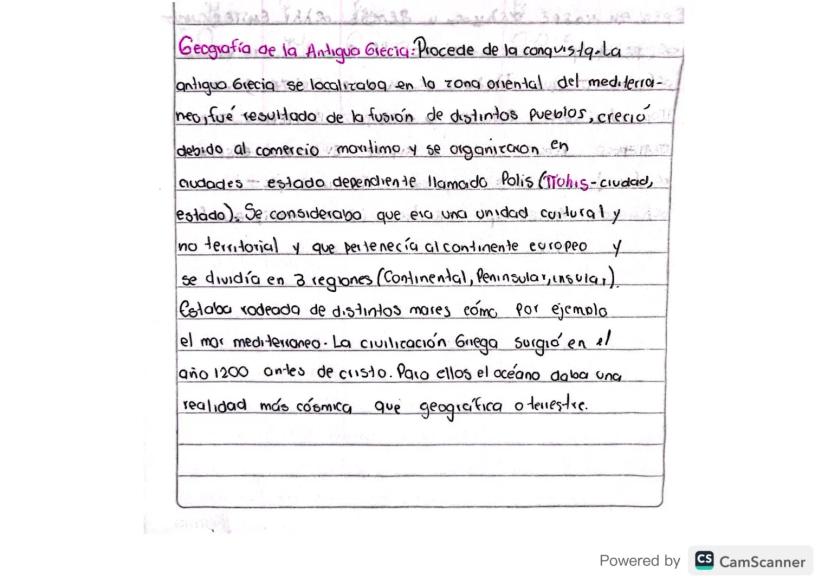 Geografía de la Antigua Grecia: Procede de la conquista. La
antigua Grecia se localizaba en la zona oriental del mediterra-
neo, fué resultado de la fusión de distintos pueblos, creció
debido al comercio maritimo y se organizaron en
ciudades - estado dependiente llamado Polis (πohis - ciudad,
estado). Se consideraba que era una unidad cultural y
no territorial y que pertenecía al continente europeo y
se dividía en 3 regiones (Continental, Peninsular, insular).
Estaba rodeada de distintos mares cómo por ejemplo
el mar mediterraneo. La civilicación Griega surgió en el
año 1200 antes de cristo. Para ellos el océano daba una
realidad más cósmica que geográfica o terrestre.
Powered by CS CamScanner